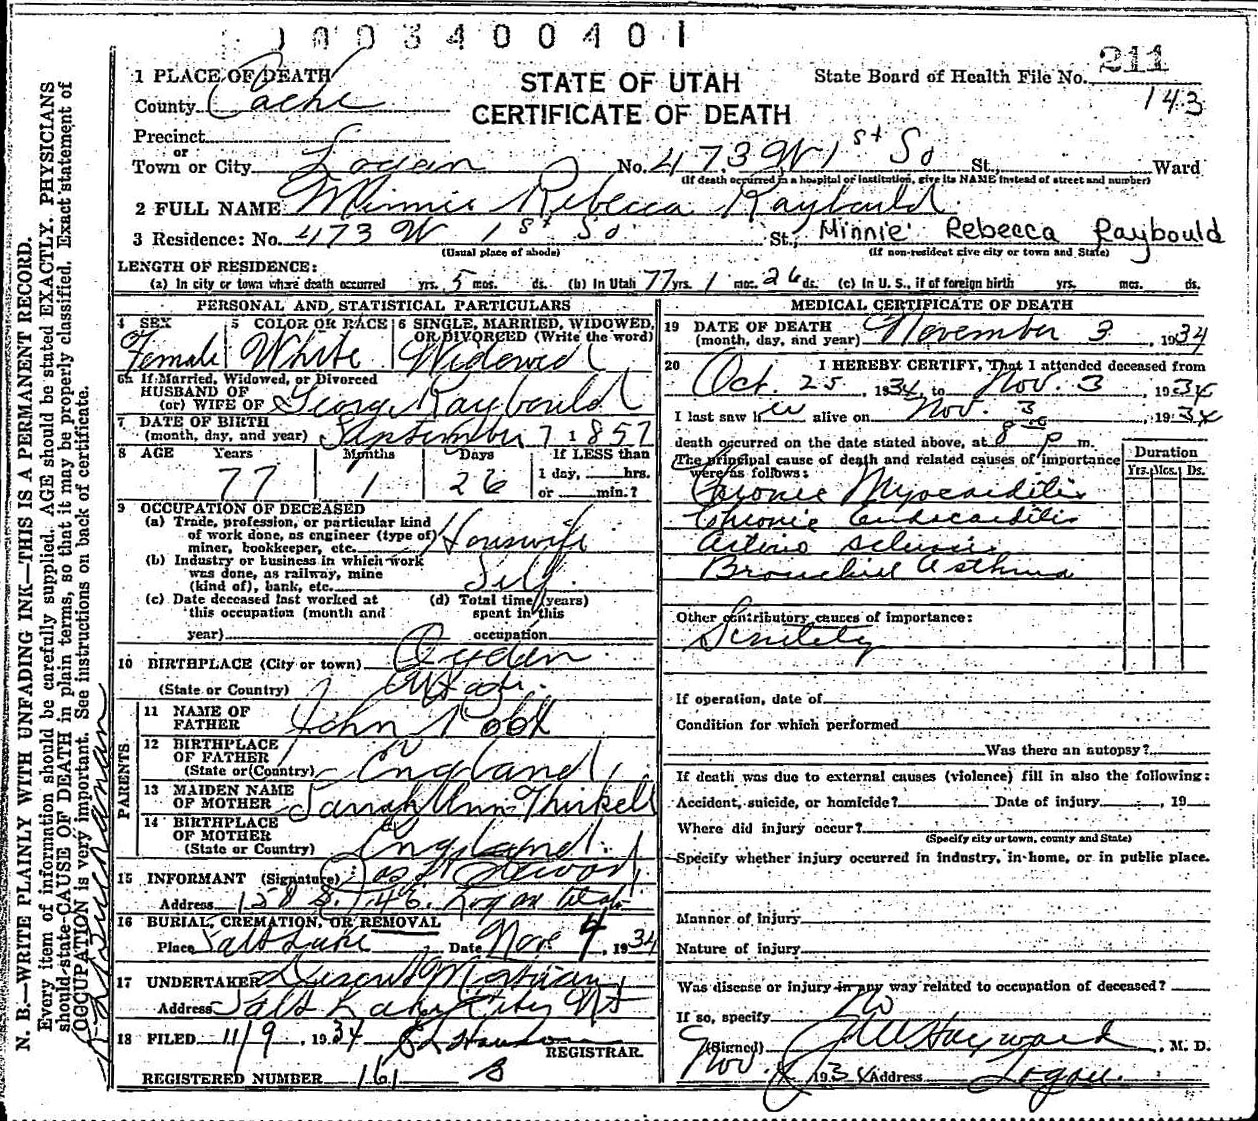 1003400401
211
1 PLACE OF DEATH
STATE OF UTAH
State Board of Health File No.
143
County Cache
CERTIFICATE OF DEATH
Precinct
or
Town or City Logan No. 473 W 1st So St., Ward
(If death occurred in a hospital or institution, give its NAME instead of street and number)
2 FULL NAME Minnie Rebecca Raybould
3 Residence: No. 473 W 1st So. St., Minnie Rebecca Raybould
(Usual place of abode) (If non-resident give city or town and State)
LENGTH OF RESIDENCE:
(a) In city or town where death occurred yrs. 5 mos. ds. (b) In Utah 77 yrs. 1 mos. 26 ds. (c) In U. S., if of foreign birth yrs. mos. ds.
PERSONAL AND STATISTICAL PARTICULARS
4 SEX 5 COLOR OR RACE 6 SINGLE, MARRIED, WIDOWED, OR DIVORCED (Write the word)
Female White Widowed
6a If Married, Widowed, or Divorced
HUSBAND OF
(or) WIFE OF George Raybould
7 DATE OF BIRTH
(month, day, and year) September 7 1857
8 AGE Years Months Days If LESS than
77 1 26 1 day, hrs.
or min.?
9 OCCUPATION OF DECEASED
(a) Trade, profession, or particular kind
of work done, as engineer (type of)
miner, bookkeeper, etc. Housewife
(b) Industry or business in which work
was done, as railway, mine
(kind of), bank, etc. Self
(c) Date deceased last worked at (d) Total time (years)
this occupation (month and spent in this
year) occupation
10 BIRTHPLACE (City or town) Ogden
(State or Country) Utah.
PARENTS
11 NAME OF
FATHER John
12 BIRTHPLACE
OF FATHER
(State or Country) England
13 MAIDEN NAME
OF MOTHER Sarah Ann Thirkell
14 BIRTHPLACE
OF MOTHER
(State or Country) England.
15 INFORMANT (Signature)
Address 158 Logan Utah
16 BURIAL, CREMATION, OR REMOVAL
Place Salt Lake Date Nov. 4, 1934
17 UNDERTAKER Mortuary
Address Salt Lake City
18 FILED 11/9, 1934
REGISTRAR.
REGISTERED NUMBER 161 B
MEDICAL CERTIFICATE OF DEATH
19 DATE OF DEATH
(month, day, and year) November 3, 1934
20 I HEREBY CERTIFY, That I attended deceased from
Oct. 25, 1934, to Nov. 3, 1934
I last saw her alive on Nov. 3, 1934
death occurred on the date stated above, at 8 p m.
The principal cause of death and related causes of importance
were as follows:
Duration
Yrs. Mos. Ds.
Chronic Myocarditis
Chronic Endocarditis
Arterio Sclerosis
Bronchial Asthma
Other contributory causes of importance:
Senility
If operation, date of
Condition for which performed
Was there an autopsy?
If death was due to external causes (violence) fill in also the following:
Accident, suicide, or homicide? Date of injury , 19
Where did injury occur?
(Specify city or town, county and State)
Specify whether injury occurred in industry, in home, or in public place.
Manner of injury
Nature of injury
Was disease or injury in any way related to occupation of deceased?
If so, specify No
(Signed) J W Hayward, M. D.
Nov. 1934 Address Logan.
N. B.—WRITE PLAINLY WITH UNFADING INK—THIS IS A PERMANENT RECORD.
Every item of information should be carefully supplied. AGE should be stated EXACTLY. PHYSICIANS
should state CAUSE OF DEATH in plain terms, so that it may be properly classified. Exact statement of
OCCUPATION is very important. See instructions on back of certificate.